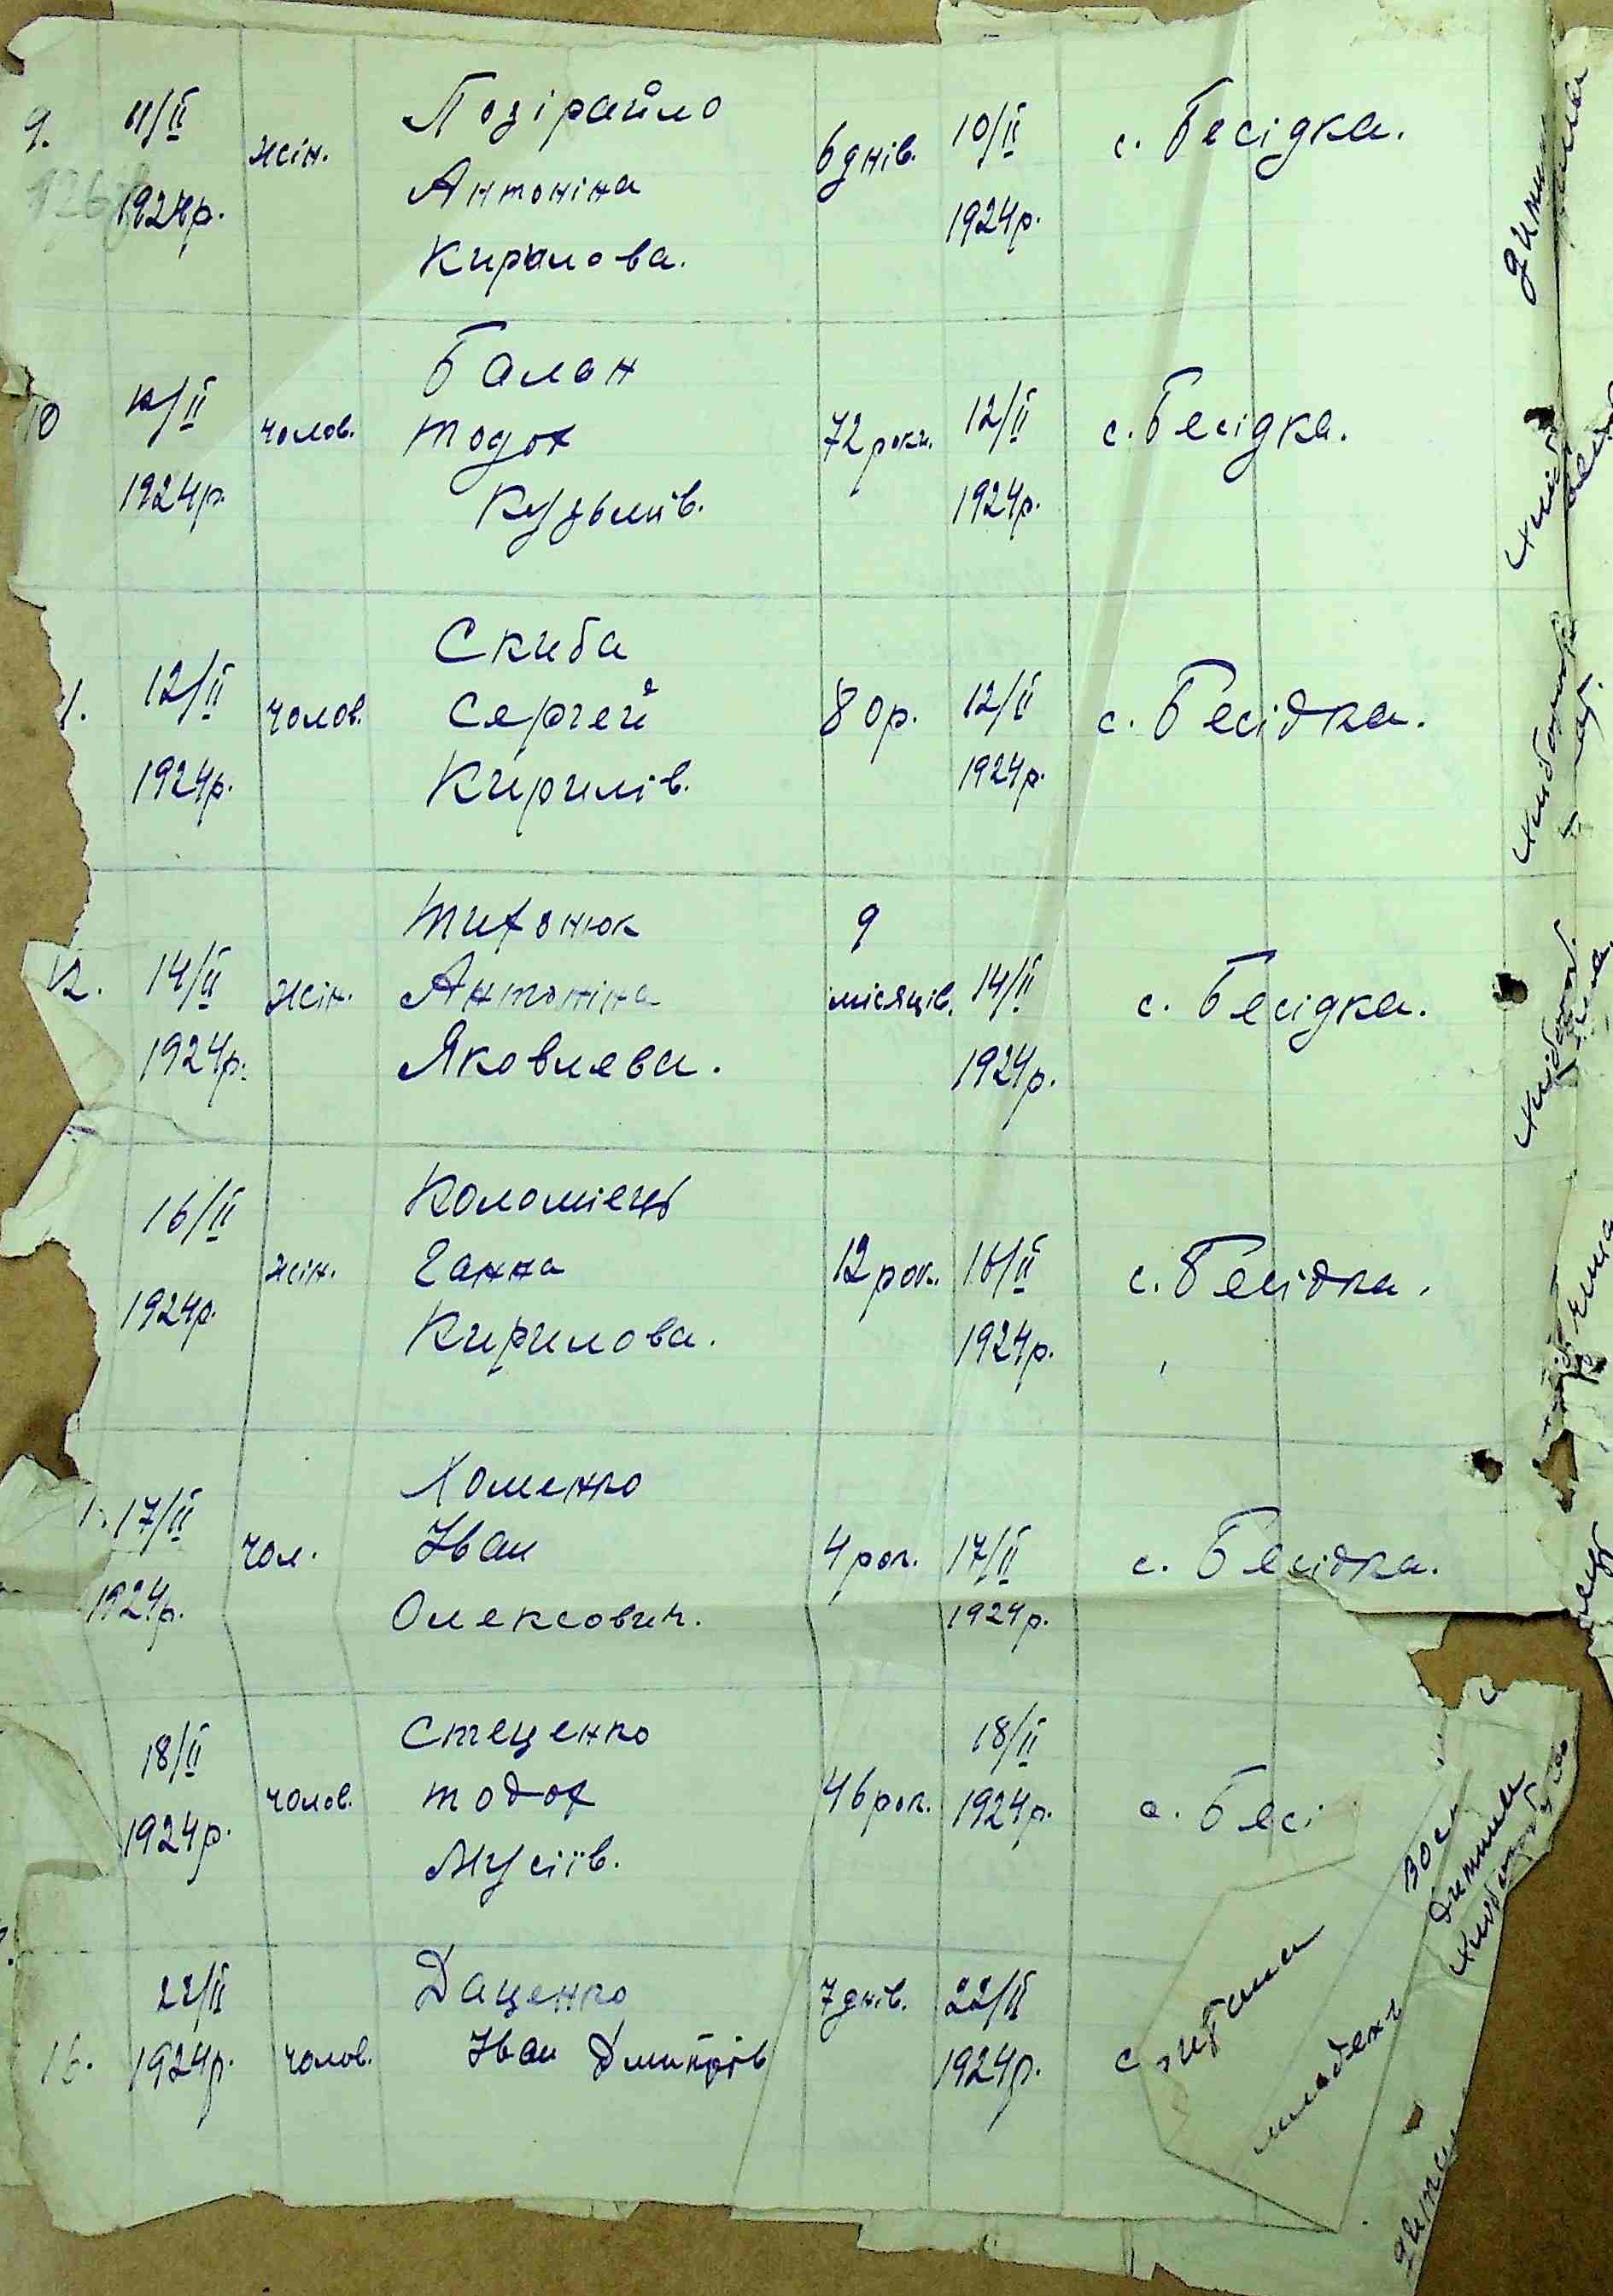 9. 11/II жін. Позірайло 6 днів. 10/II с. Бесідка.
1924р. Антоніна 1924р.
Кирилова.
10 12/II чолов. Балан 72 роки. 12/II с. Бесідка.
1924р. Тодох 1924р.
Кузьмів.
1. 12/II чолов. Скиба 80р. 12/II с. Бесідка.
1924р. Сергей 1924р.
Кирилів.
12. 14/II жін. Тихонюк 9 14/II с. Бесідка.
1924р. Антоніна місяців. 1924р.
Яковлева.
16/II жін. Коломіець 12 рок. 16/II с. Бесідка.
1924р. Ганна 1924р.
Кирилова.
17/II чол. Хоменко 4 рок. 17/II с. Бесідка.
1924р. Іван 1924р.
Олексович.
18/II чолов. Стеценко 46 рок. 18/II с. Бесі
1924р. Тодох 1924р.
Мусіїв.
16. 22/II чолов. Даценко 7 днів. 22/II с
1924р. Іван Дмитрів 1924р.